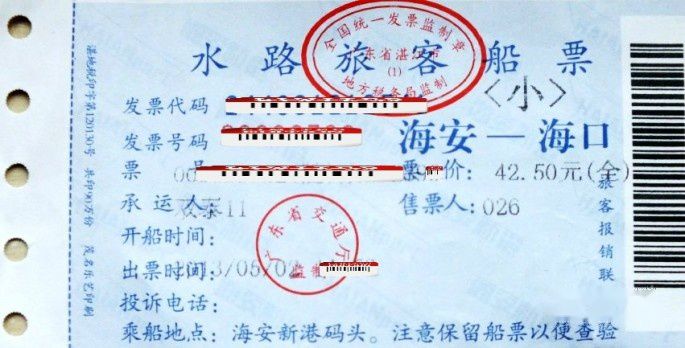 水路旅客船票
全国统一发票监制章
广东省湛江市
(1)
地方税务局监制
<小>
发票代码
发票号码
海安—海口
票号
票价: 42.50元(全)
承运人: 双泰11
售票人: 026
开船时间:
出票时间: 2013/05/02
广东省交通厅
监制
投诉电话:
乘船地点: 海安新港码头。注意保留船票以便查验
旅客报销联
湛地税印字第120130号 共印90万份 茂名乐艺印刷